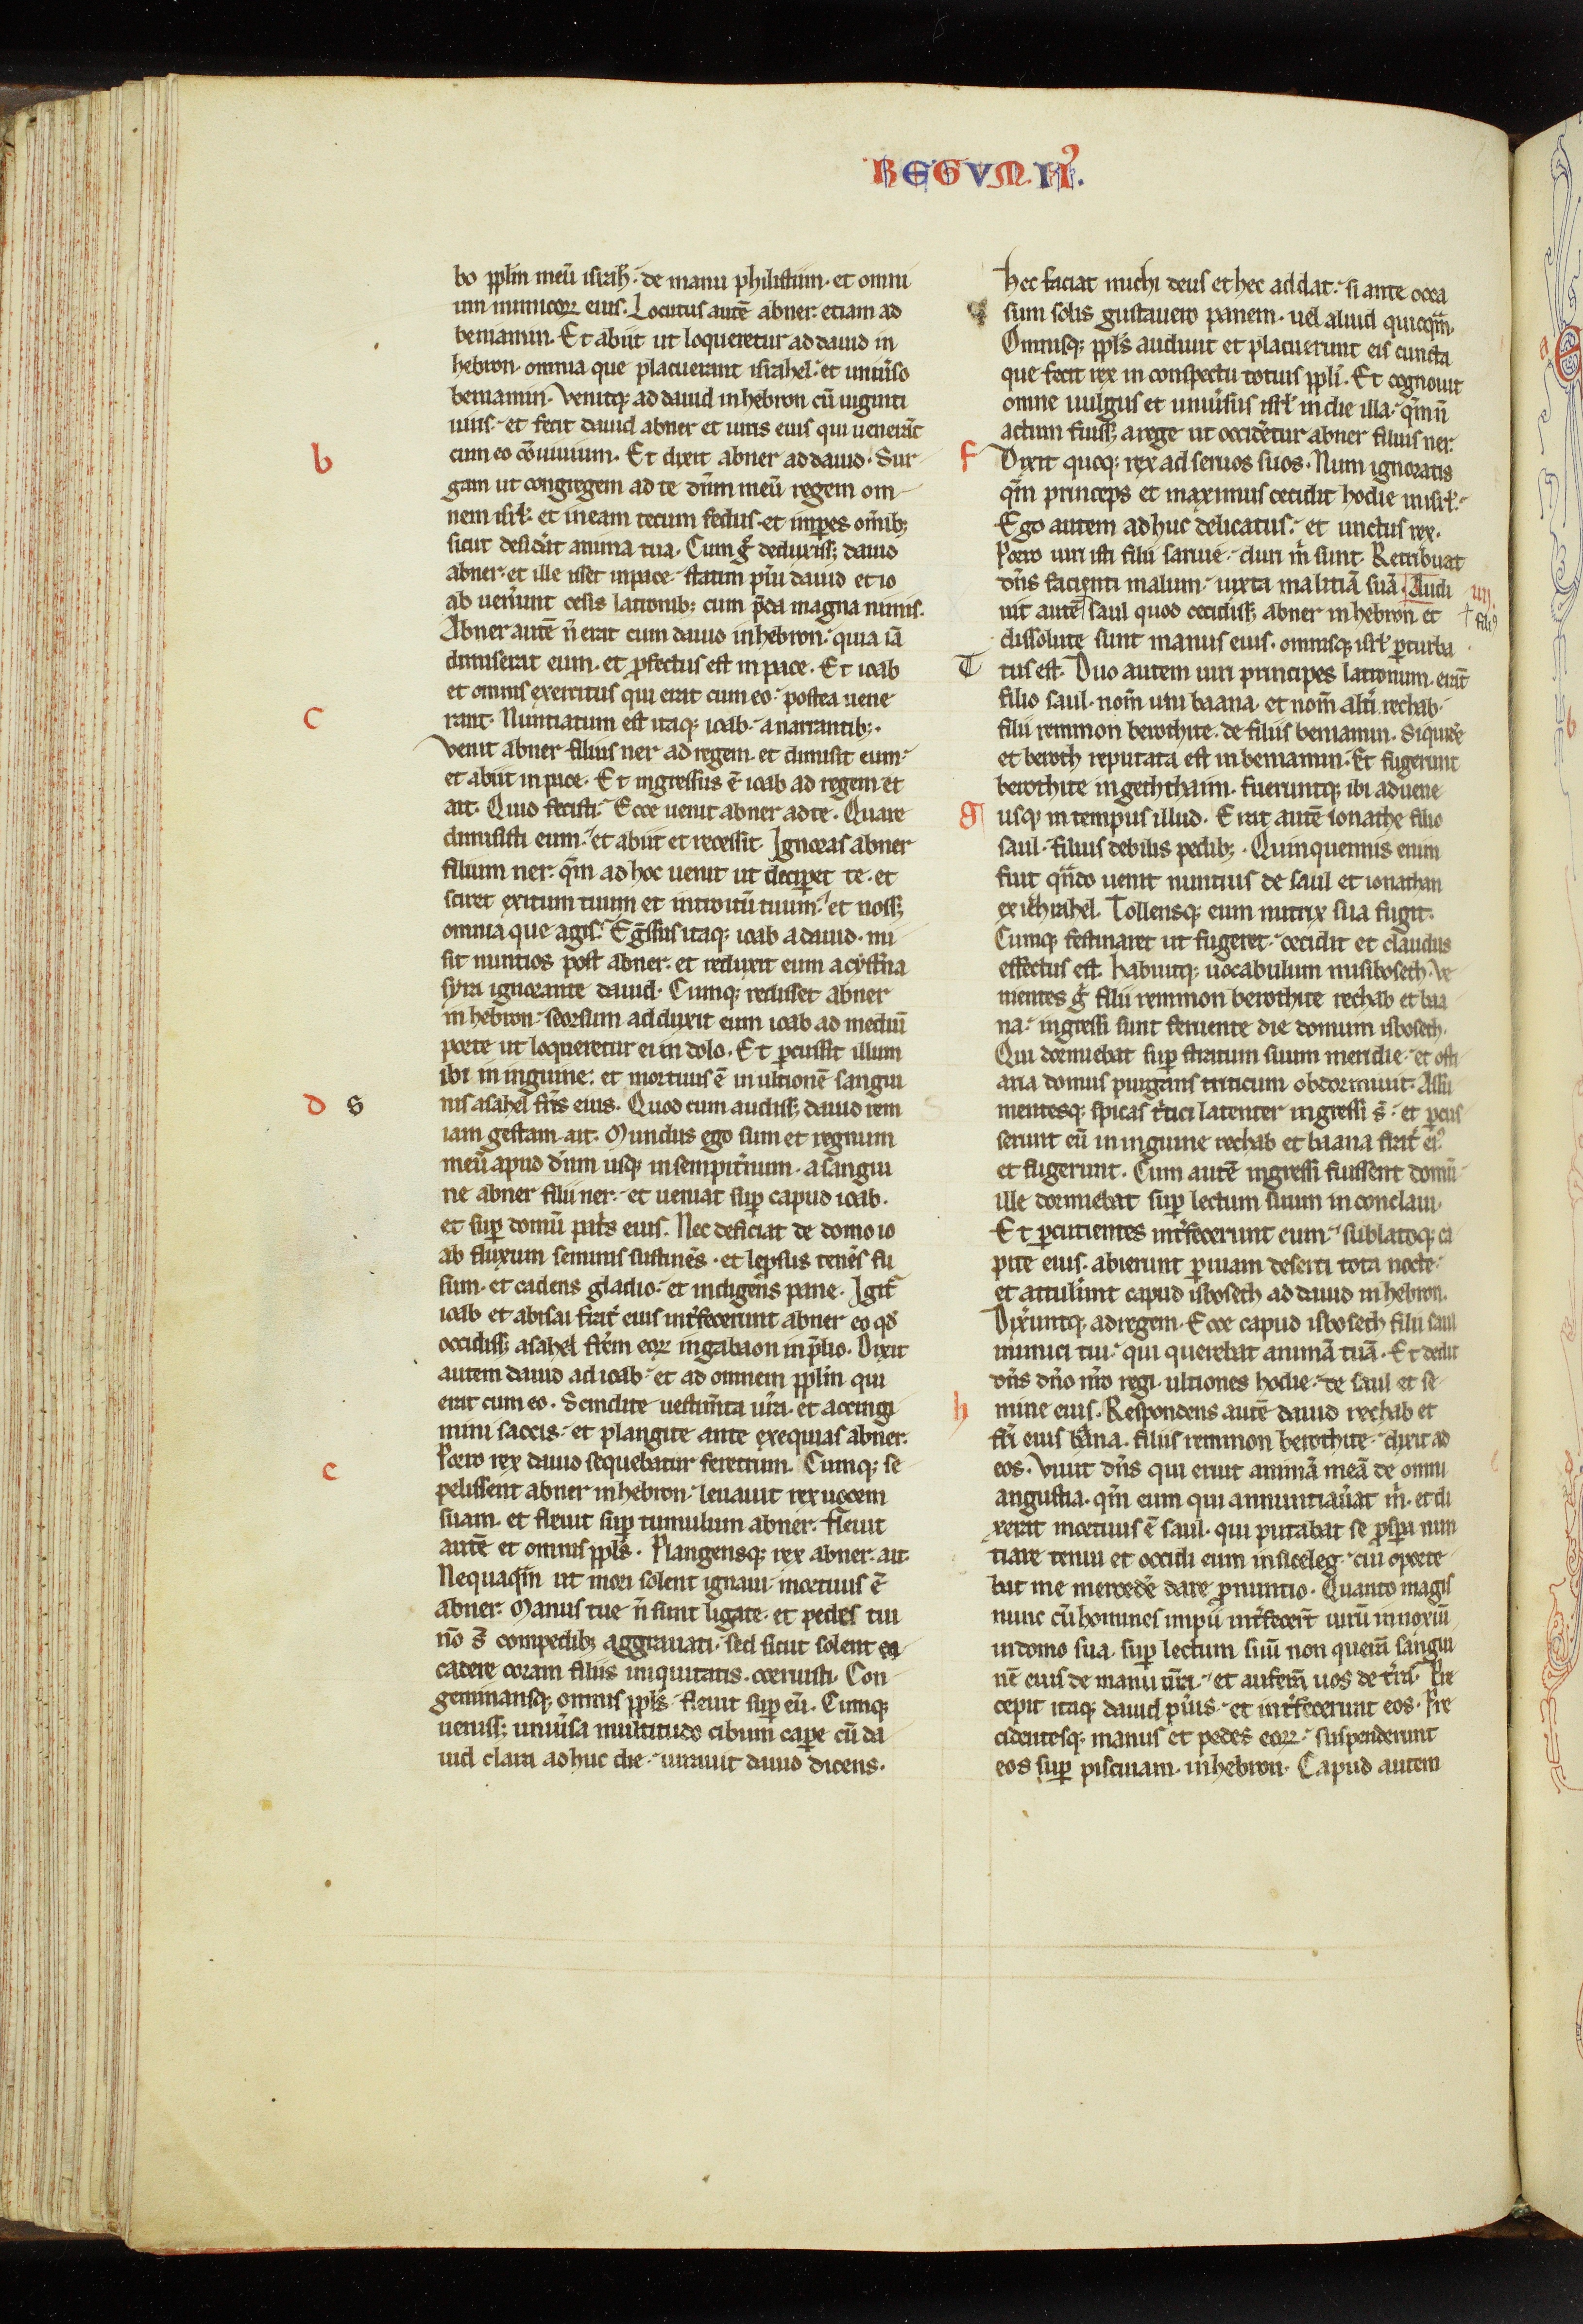 REGUM. II.
bo pplm meū isrłh. de manu philistiim. et omni
um inimicoꝝ eius. Locutus autē abner etiam ad
beniamin. Et abiit ut loqueretur ad dauid in
hebron. omnia que placuerant israhel. et uniũso
beniamin. Venitqꝫ ad dauid in hebron cū uiginti
uiris. et fecit dauid abner et uiris eius qui uenerāt
b
cum eo cōuiuium. Et dixit abner ad dauid. Sur
gam ut congregem ad te dñm meū regem om
nem isrł. et ineam tecum fedus. et imꝑes om̄ibꝫ
sicut desidāt anima tua. Cum g̊ deduxissꝫ dauid
abner. et ille isset in pace. statim pũi dauid et io
ab uen̄unt cesis latronibꝫ cum p̄da magna nimis.
Abner autē n̄ erat cum dauid in hebron. quia iā
dimiserat eum. et ꝓfectus est in pace. Et ioab
et omnis exercitus qui erat cum eo. postea uene
c
rant. Nuntiatum est itaqꝫ ioab. a narrantibꝫ.
venit abner filius ner ad regem. et dimisit eum.
et abiit in pace. Et ingressus ē ioab ad regem et
ait. Quid fecisti. Ecce uenit abner ad te. Quare
dimisisti eum. et abiit et recessit. Ignoras abner
filium ner. qm̄ ad hoc uenit ut deciꝑet te. et
sciret exitum tuum et introitū tuum. et nossꝫ
omnia que agis. Eg̃ssus itaqꝫ ioab a dauid. mi
sit nuntios post abner. et reduxit eum a cyst̄na
syra ignorante dauid. Cumqꝫ redisset abner
in hebron. seorsum adduxit eum ioab ad mediū
porte ut loqueretur ei in dolo. Et ꝑcussit illum
ibi in inguine. et mortuus ē in ultionē sangui
d s
nis asahel fr̄is eius. Quod cum audissꝫ dauid rem
iam gestam. ait. Mundus ego sum et regnum
meū apud dn̄m usqꝫ in sempit̄num. a sangui
ne abner filii ner. et ueniat suꝑ capud ioab.
et suꝑ domū pat̄s eius. Nec deficiat de domo io
ab fluxum seminis sustinēs. et leprsus tenēs fu
sum. et cadens gladio. et indigens pane. Igit̄
ioab et abisai frat̄ eius int̄fecerunt abner eo qd̄
occidissꝫ asahel fr̄em eoꝝ in gabaon in p̄lio. Dixit
autem dauid ad ioab. et ad omnem pplm qui
erat cum eo. Scindite uestim̄ta ur̄a. et accingi
mini saccis. et plangite ante exequias abner.
Porro rex dauid sequebatur feretrum. Cumqꝫ se
e
pelissent abner in hebron. leuauit rex uocem
suam. et fleuit suꝑ tumulum abner. Fleuit
autē et omnis ppls. Plangensqꝫ rex abner. ait.
Nequaqm̄ ut mori solent ignaui. mortuus ē
abner. Manus tue n̄ sunt ligate. et pedes tui
nō s̄ compedibꝫ aggrauati. sed sicut solent
cadere coram filiis iniquitatis. corruisti. Con
geminansqꝫ omnis ppls. fleuit suꝑ eū. Cumqꝫ
uenissꝫ uniũsa multitudo cibum caꝑe cū da
uid clara adhuc die. iurauit dauid dicens.
hec faciat michi deus et hec addat. si ante occa
sum solis gustauero panem. uel aliud quicqm̄.
Omnisqꝫ ppls audiuit et placuerunt eis cuncta
que fecit rex in conspectu totius ppli. Et cognouit
omne uulgus et uniũsus isrł in die illa. qm̄ n̄
actum fuissꝫ a rege ut occidētur abner filius ner.
f
Dixit quoqꝫ rex ad seruos suos. Num ignoratis
qm̄ princeps et maximus cecidit hodie in isrł.
Ego autem adhuc delicatus. et unctus rex.
Porro uiri isti filii saruie. duri m̄ sunt. Retribuat
dn̄s facienti malum. iuxta malitiā suā. Audi
iiii.
uit autē saul quod cecidissꝫ abner in hebron. et
† fili9
dissolute sunt manus eius. omnisqꝫ isrł ꝑturba
T
tus est. Duo autem uiri principes latronum. erāt
filio saul. nom̄ uni baana. et nom̄ alt̄i rechab.
filii remmon berothite. de filiis beniamin. Siquidē
et beroth reputata est in beniamin. Et fugerunt
berothite in geththaim. fueruntqꝫ ibi aduene
g
usqꝫ in tempus illud. Erat autē ionathe filio
saul. filius debilis pedibꝫ. Quinquennis enim
fuit qn̄do uenit nuntius de saul et ionathan
ex iezrahel. Tollensqꝫ eum nutrix sua fugit.
Cumqꝫ festinaret ut fugeret. cecidit et claudus
effectus est. habuitqꝫ uocabulum misibosech. Ve
nientes g̊ filii remmon berothite rechab et baa
na. ingressi sunt feruente die domum isbosech.
Qui dormiebat suꝑ stratum suum meridie. et osti
aria domus purgans triticum obdormiuit. Assu
mentesqꝫ spicas t̄tici latenter ingressi s̄. et ꝑcus
serunt eū in inguine rechab et baana frat̄ ei9
et fugerunt. Cum autē ingressi fuissent domū
ille dormiebat suꝑ lectum suum in conclaui.
Et ꝑcutientes int̄fecerunt eum. sublatoqꝫ ca
pite eius. abierunt ꝑ uiam deserti tota nocte.
et attul̄unt capud isbosech ad dauid in hebron.
Dix̄untqꝫ ad regem. Ecce capud isbosech filii saul
inimici tui. qui querebat animā tuā. Et dedit
dn̄s dn̄o nr̄o regi. ultiones hodie. de saul et se
h
mine eius. Respondens autē dauid rechab et
fr̄i eius baana. filiis remmon berothite. dixit ad
eos. Viuit dn̄s qui eruit animā meā de omni
angustia. qm̄ eum qui annuntiaũat m̄. et di
xerat mortuus ē saul. qui putabat se ꝓspa nun
tiare tenui et occidi eum in siceleg. cui oporte
bat me mercedē dare ꝓ nuntio. Quanto magis
nunc cū homines impii int̄fecer̄t uirū innoxiū
in domo sua. suꝑ lectum suū non querā sangui
nē eius de manu ur̄a. et auferā uos de t̄ra. Pre
cepit itaqꝫ dauid pũis. et int̄fecerunt eos. Pre
cidentesqꝫ manus et pedes eoꝝ. suspenderunt
eos suꝑ piscinam. in hebron. Capud autem